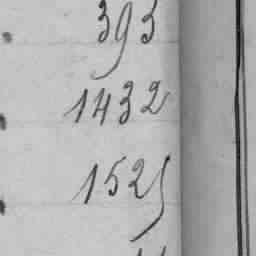 393
1432
1525